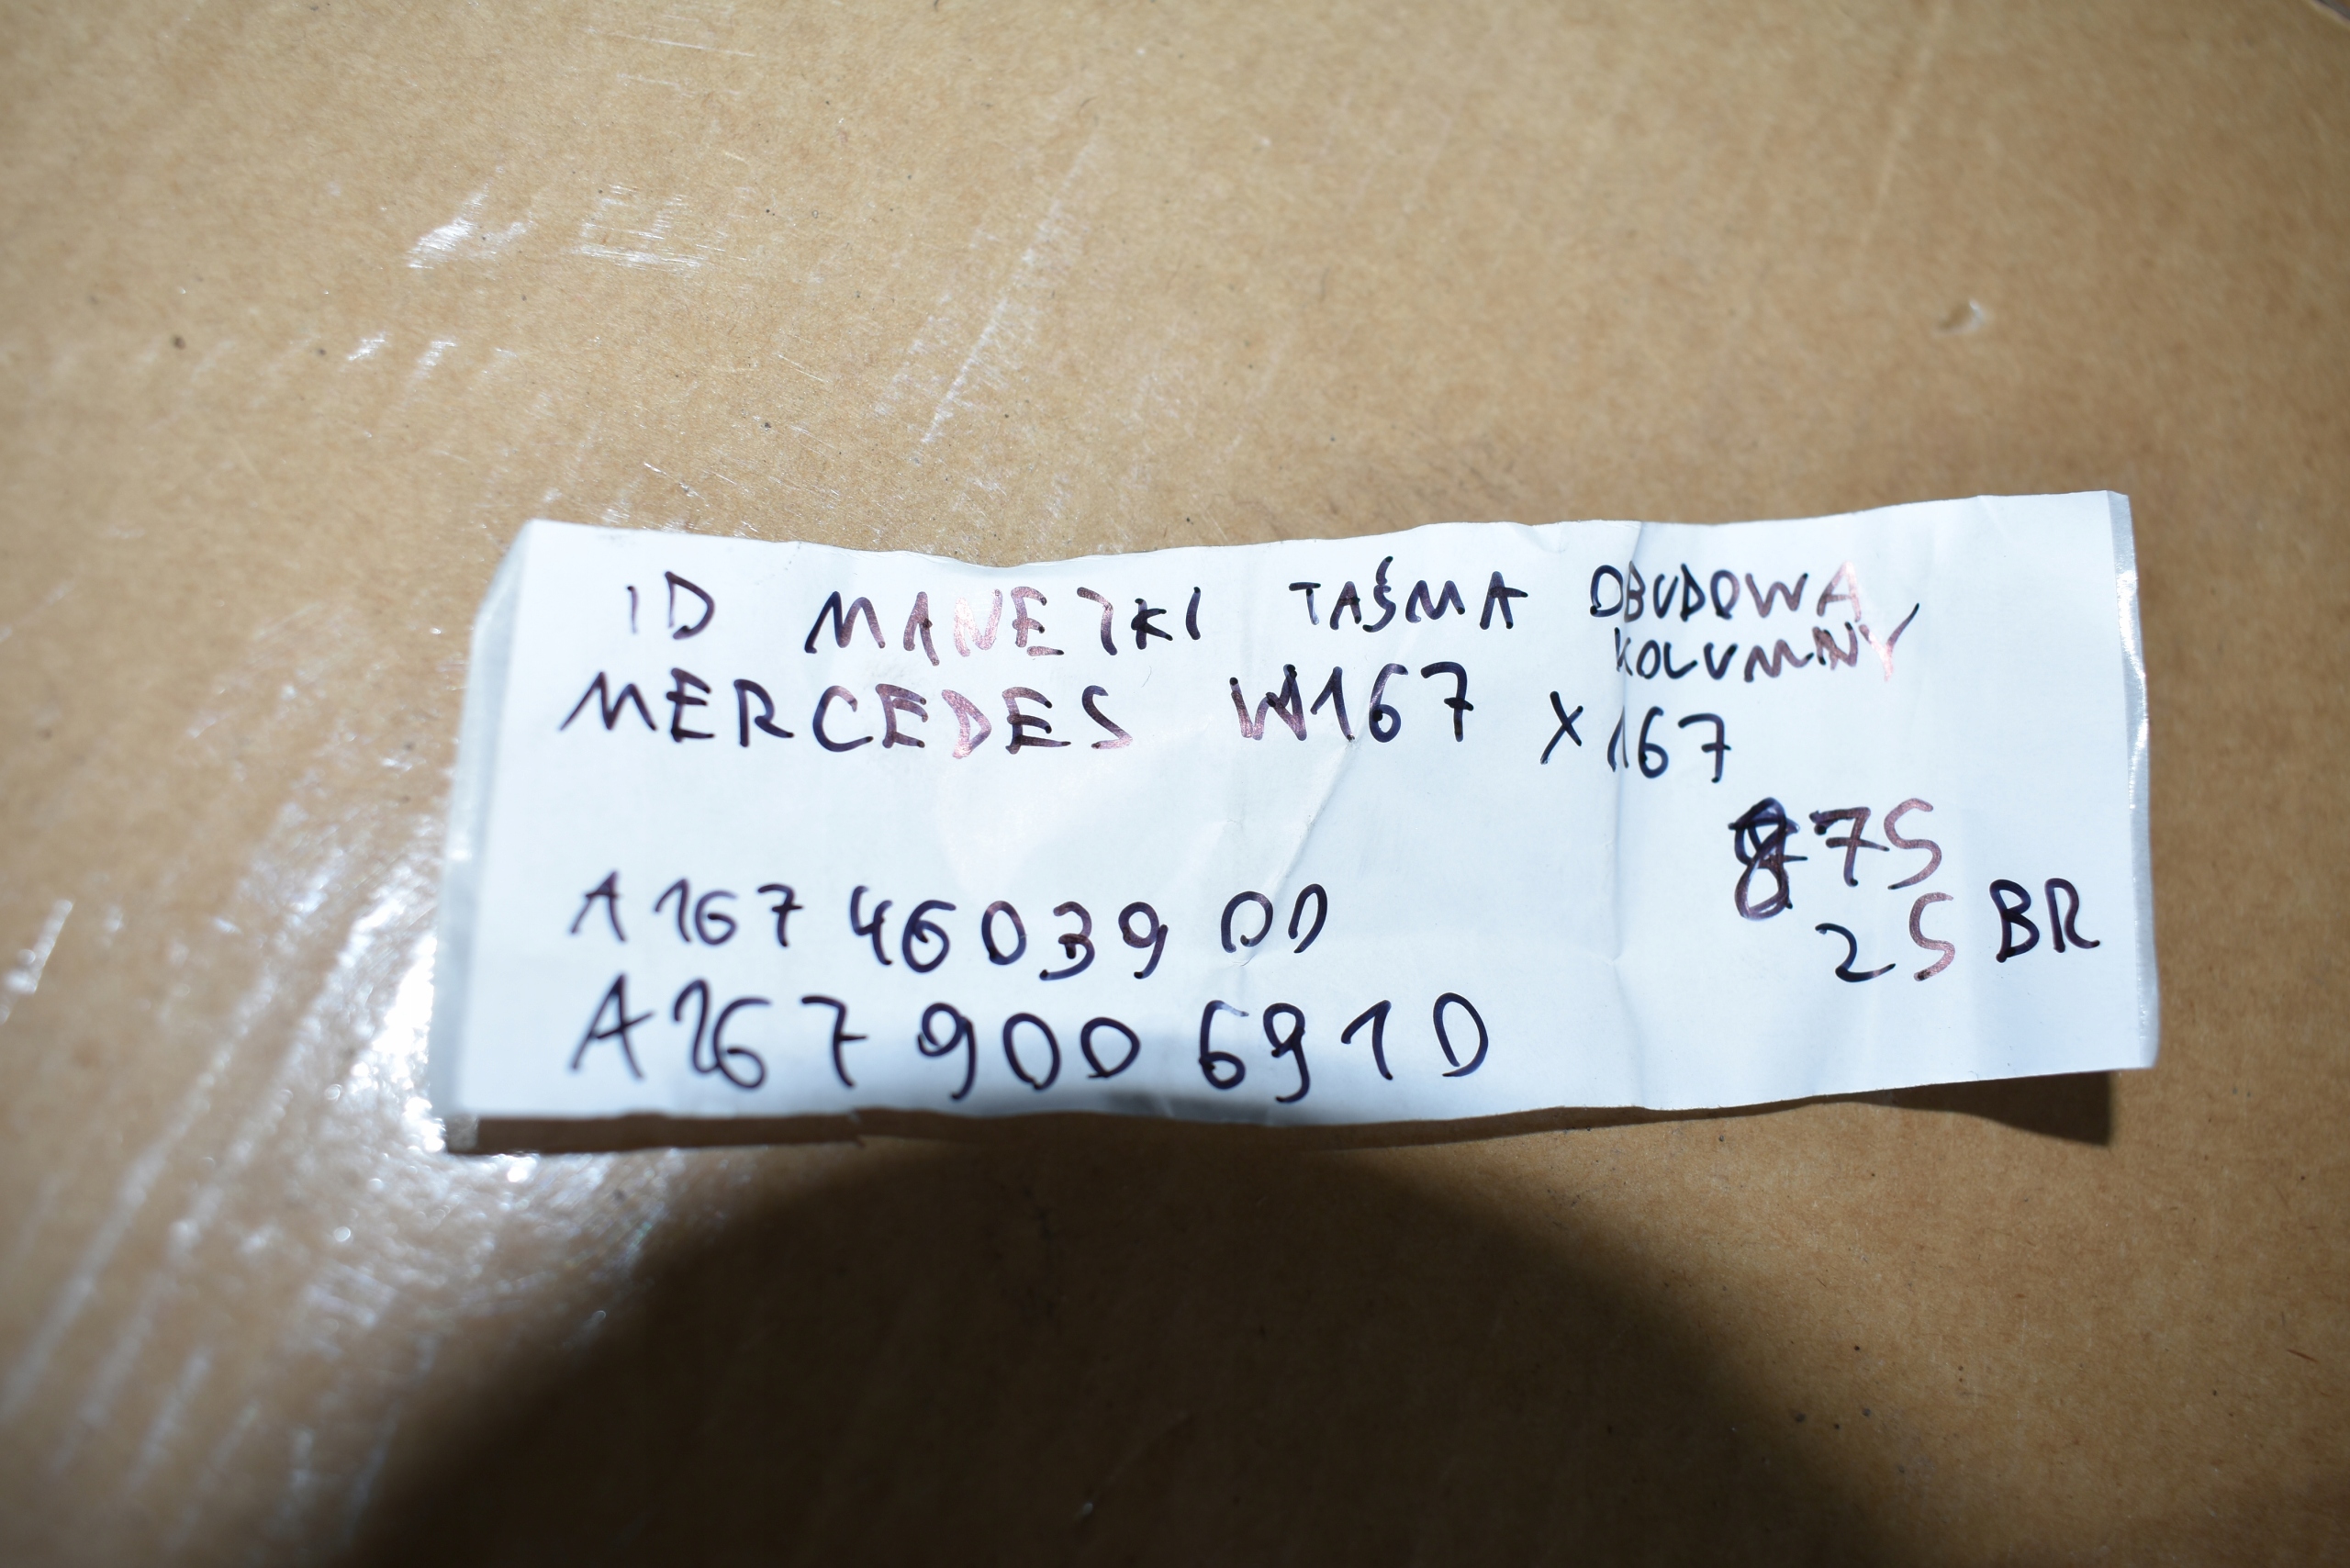 ID MANETKI TAŚMA OBUDOWA
KOLUMNY
MERCEDES W167 X167
875
A 167 46039 00
25 BR
A167 900 6910